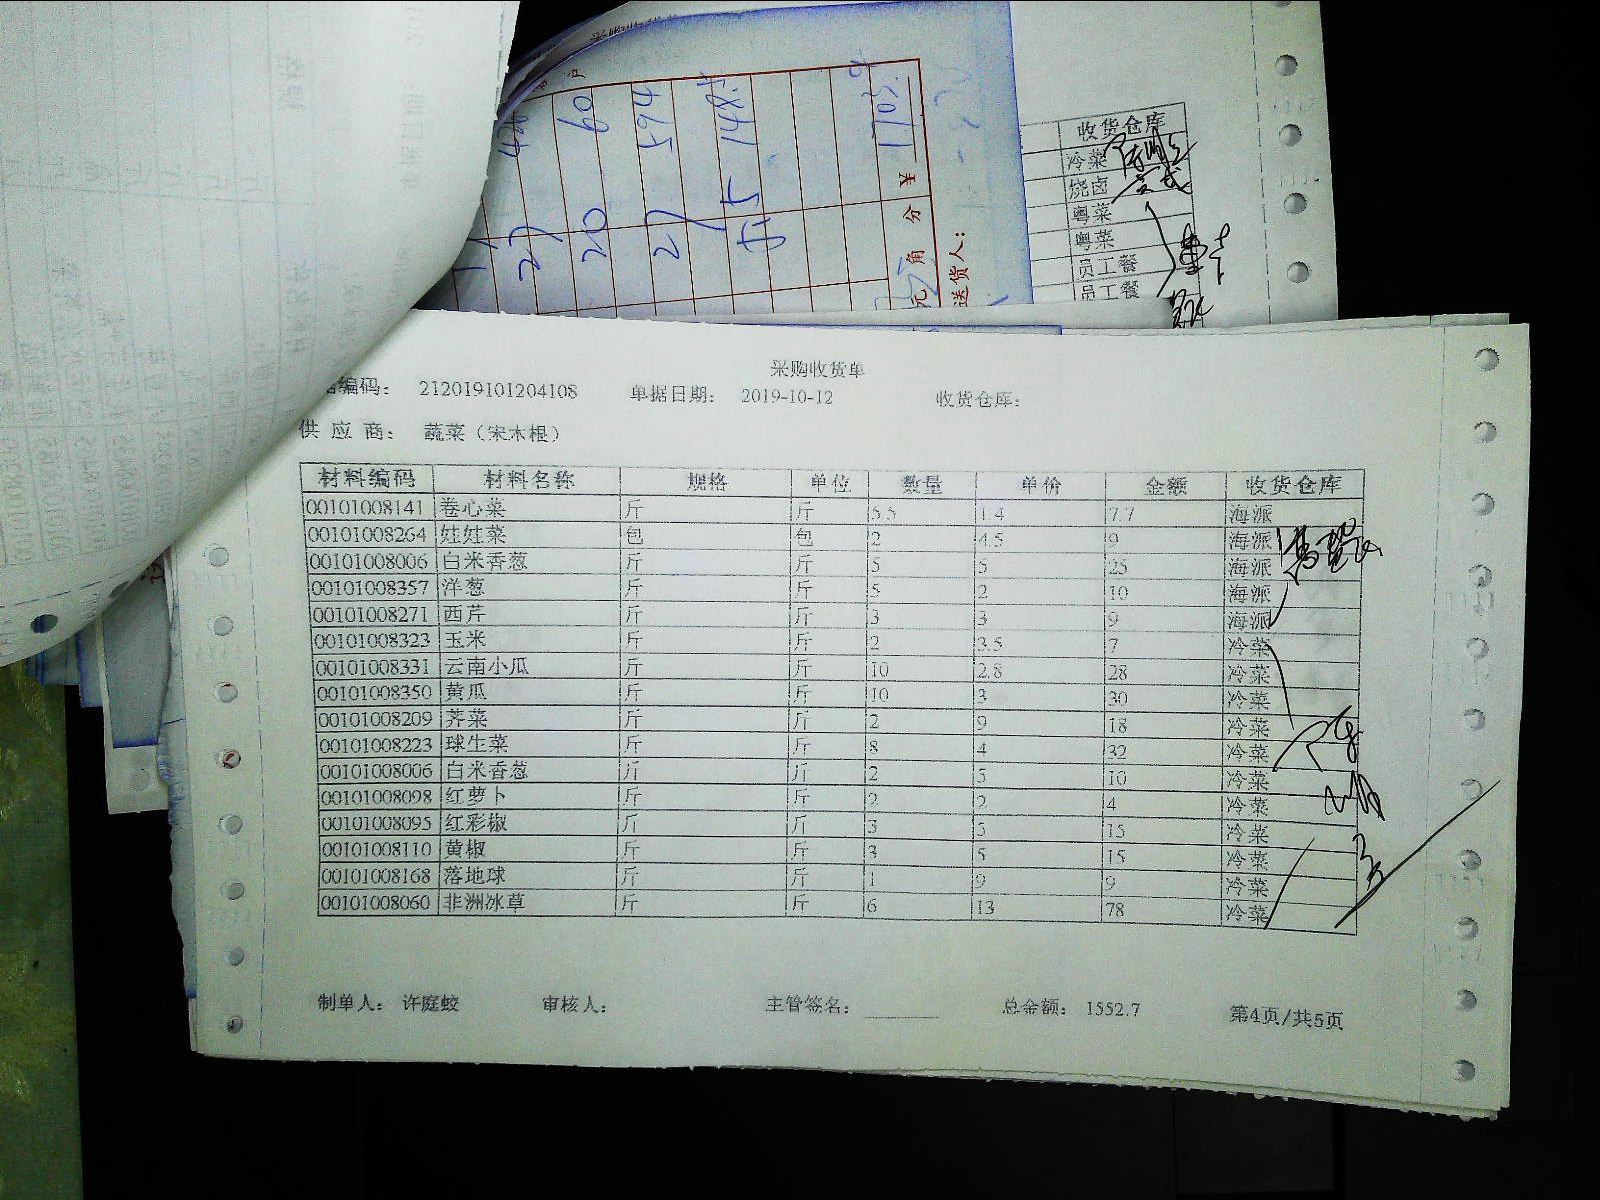 收货仓库
冷菜
烧卤
粤菜
粤菜
员工餐
员工餐
60
20
594
148.5
¥
元 角 分
送货人：
采购收货单
编码： 212019101204108 单据日期： 2019-10-12 收货仓库：
供 应 商： 蔬菜（宋木根）
材料编码 材料名称 规格 单位 数量 单价 金额 收货仓库
00101008141 卷心菜 斤 斤 5.5 1.4 7.7 海派
00101008264 娃娃菜 包 包 2 4.5 9 海派
00101008006 白米香葱 斤 斤 5 5 25 海派
00101008357 洋葱 斤 斤 5 2 10 海派
00101008271 西芹 斤 斤 3 3 9 海派
00101008323 玉米 斤 斤 2 3.5 7 冷菜
00101008331 云南小瓜 斤 斤 10 2.8 28 冷菜
00101008350 黄瓜 斤 斤 10 3 30 冷菜
00101008209 荠菜 斤 斤 2 9 18 冷菜
00101008223 球生菜 斤 斤 8 4 32 冷菜
00101008006 白米香葱 斤 斤 2 5 10 冷菜
00101008098 红萝卜 斤 斤 2 2 4 冷菜
00101008095 红彩椒 斤 斤 3 5 15 冷菜
00101008110 黄椒 斤 斤 3 5 15 冷菜
00101008168 落地球 斤 斤 1 9 9 冷菜
00101008060 非洲冰草 斤 斤 6 13 78 冷菜
制单人： 许庭蛟 审核人： 主管签名： 总金额： 1552.7 第4页/共5页